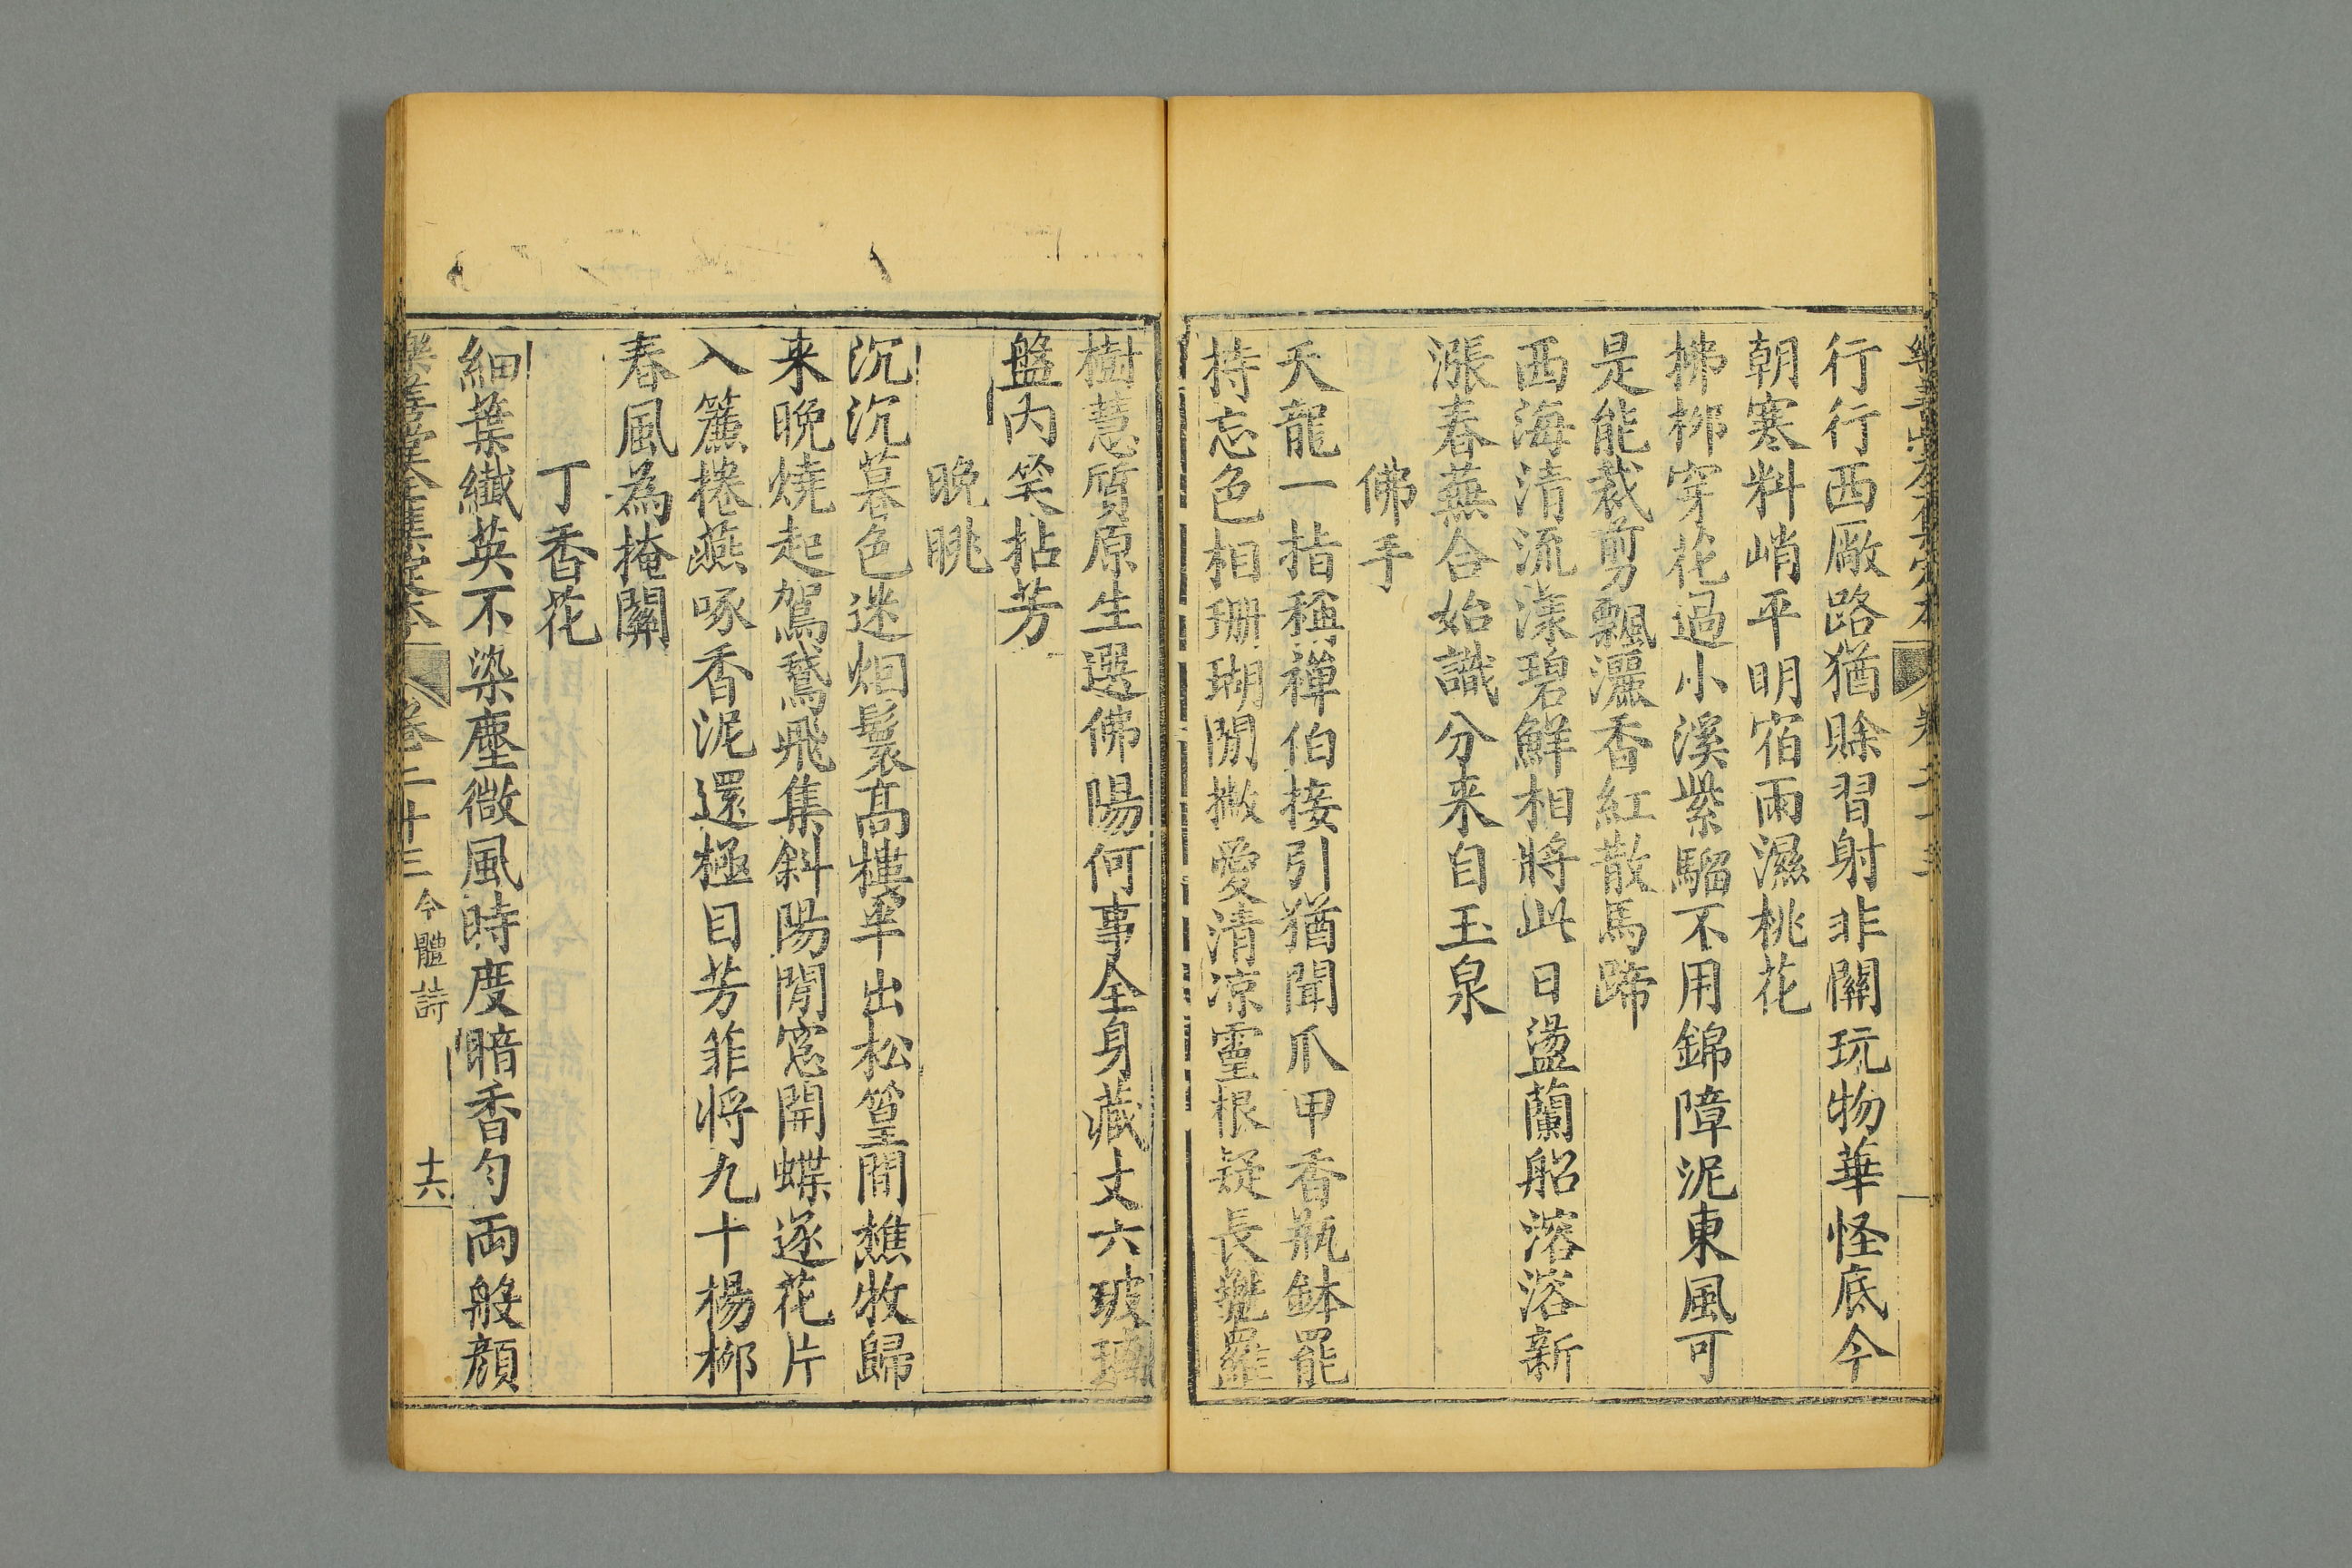 行行西厰路猶賖習射非關玩物華怪底今
朝寒料峭平明宿雨濕桃花
拂柳穿花過小溪紫騮不用錦障泥東風可
是能裁剪飄灑香紅散馬蹄
西海清流漾碧鮮相將此日盪蘭船溶溶新
漲春蕪合始識分来自玉泉
佛手
天龍一指稱禪伯接引猶聞爪甲香瓶鉢罷
持忘色相珊瑚閒撇愛清凉靈根疑長㲲羅
樹慧質原生選佛陽何事全身藏丈六玻璃
盤内笑拈芳
晚眺
沉沉暮色迷烟鬟髙樓半出松篁間樵牧歸
来晚燒起鴐鵞飛集斜陽閒窻開蝶逐花片
入簾捲燕啄香泥還極目芳菲將九十楊柳
春風為掩關
丁香花
細葉纖英不染塵微風時度暗香勻両般顔
樂善堂全集定本 卷二十三 今體詩 十六